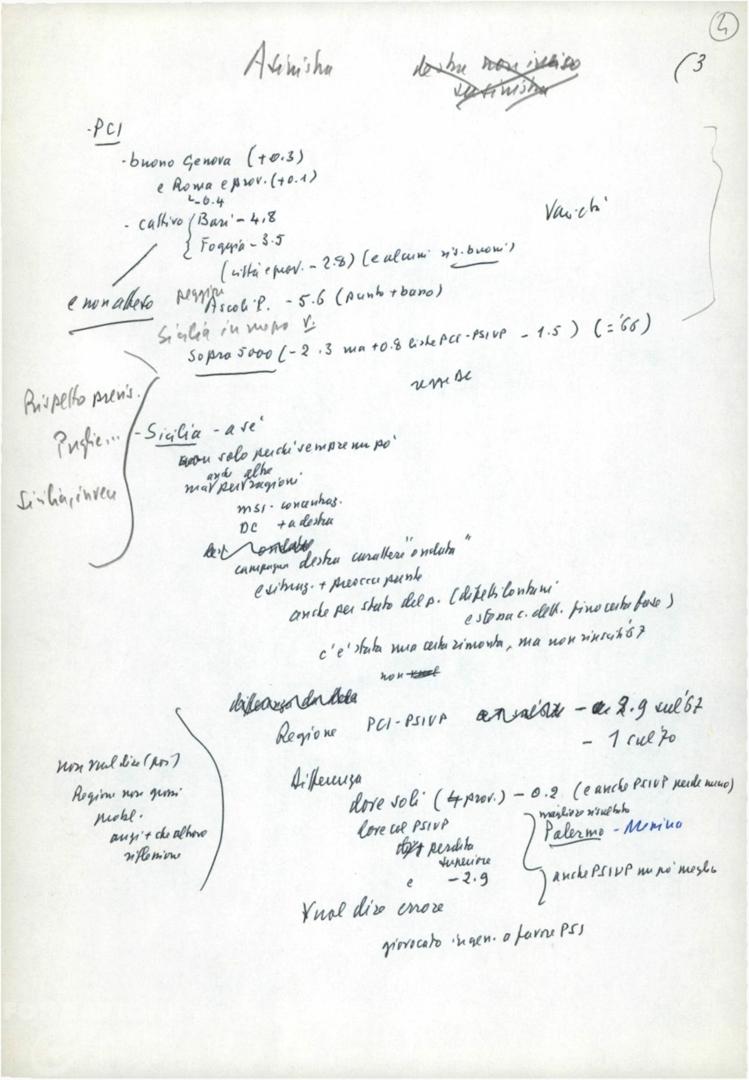 4
A sinistra
destra non inciso
su sinistra
(3
- PCI
- buono Genova (+0.3)
e Roma e prov. (+0.1)
-0.4
- cattivo Bari - 4.8
Foggia - 3.5
(città e prov. - 2.8) (e alcuni ris. buoni)
e non altero
Reggio
Ascoli P. - 5.6 (punto + basso)
Sicilia in meno
Sopra 5000 (- 2.3 ma +0.8 liste PCI-PSIUP - 1.5) (= '66)
Rispetto previs.
Puglie...
Sicilia, invece
- Sicilia - a sé
non solo perché sempre un po'
anche altre
ma per ragioni
MSI - concentraz.
DC + a destra
campagna destra carattere "ondata"
esitaz. + preoccupante
anche per stato del p. (difetti lontani
e stonac. dell. fino certa fase)
c'è stata una certa rimonta, ma non riusciti '67
non
Regione PCI-PSIUP - 2.9 sul '67
- 1 sul '70
non vuol dire (poi)
Regione non grossi
probl.
anzi + che altrove
riflessione
Differenza
dove soli (4 prov.) - 0.2 (e anche PSIUP perde meno)
dove col PSIUP
perdita
superiore
e - 2.9
migliore risultato
Palermo - Messina
anche PSIUP un po' meglio
Vuol dire errore
giovocato ingen. a favore PSI